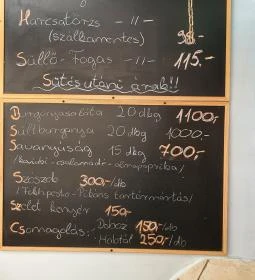 Harcsatörzs - 11 -
(szálkamentes) 98.-
Süllő-Fogas - 11 - 115.-
Sütésutáni árak!!
Burgonyasaláta 20 dkg 1100,-
Sültburgonya 20 dkg 1000-
Savanyúság 15 dkg 700,-
/kovubi-csalamádé-almapaprika/
Szószok 300/db
/Fokh.pesto-Pikáns tartármártás/
Szelet kenyér 150-
Csomagolás: Doboz 150,-/db
Habtál 250,-/db